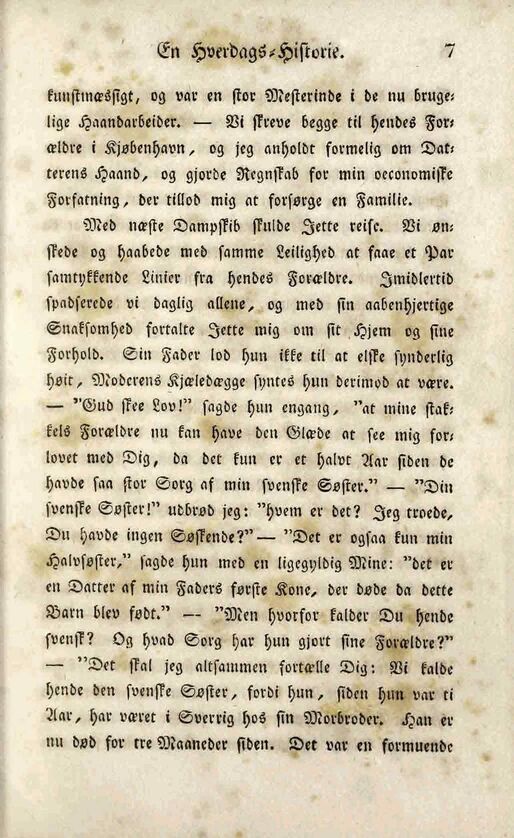 En Hverdags-Historie. 7
kunstmæssigt, og var en stor Mesterinde i de nu bruge-
lige Haandarbeider. — Vi skreve begge til hendes For-
ældre i Kjøbenhavn, og jeg anholdt formelig om Dat-
terens Haand, og gjorde Regnskab for min oeconomiske
Forfatning, der tillod mig at forsørge en Familie.
Med næste Dampskib skulde Jette reise. Vi øn-
skede og haabede med samme Leilighed at faae et Par
samtykkende Linier fra hendes Forældre. Imidlertid
spadserede vi daglig allene, og med sin aabenhjertige
Snaksomhed fortalte Jette mig om sit Hjem og sine
Forhold. Sin Fader lod hun ikke til at elske synderlig
høit, Moderens Kjæledægge syntes hun derimod at være.
— "Gud skee Lov!" sagde hun engang, "at mine stak-
kels Forældre nu kan have den Glæde at see mig for-
lovet med Dig, da det kun er et halvt Aar siden de
havde saa stor Sorg af min svenske Søster." — "Din
svenske Søster!" udbrød jeg: "hvem er det? Jeg troede,
Du havde ingen Søskende?" — "Det er ogsaa kun min
Halvsøster," sagde hun med en ligegyldig Mine: "det er
en Datter af min Faders første Kone, der døde da dette
Barn blev født." — "Men hvorfor kalder Du hende
svensk? Og hvad Sorg har hun gjort sine Forældre?"
— "Det skal jeg altsammen fortælle Dig: Vi kalde
hende den svenske Søster, fordi hun, siden hun var ti
Aar, har været i Sverrig hos sin Morbroder. Han er
nu død for tre Maaneder siden. Det var en formuende